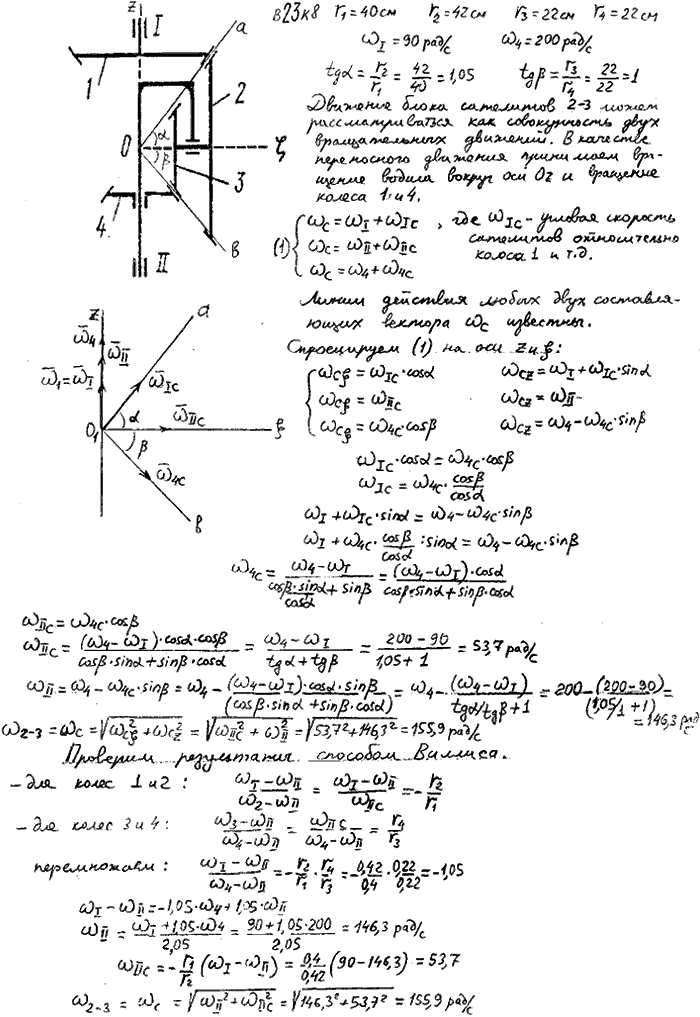 В23к8 r₁=40см r₂=42см r₃=22см r₄=22см
ω_I=90 рад/с ω₄=200 рад/с
tgα=r₂/r₁=42/40=1,05 tgβ=r₃/r₄=22/22=1
Движение блока сателитов 2-3 может
рассматриваться как совокупность двух
вращательных движений. В качестве
переносного движения принимаем вра-
щение водила вокруг оси Oz и вращение
колеса 1 и 4.
z I a
1 2
O α β ζ
3
4
II в
(1) { ω_C=ω_I+ω_IC , где ω_IC - угловая скорость
ω_C=ω_II+ω_IIC сателитов относительно
ω_C=ω₄+ω₄C колеса 1 и т.д.
Линии действия любых двух составля-
ющих вектора ω_C известны.
Спроецируем (1) на оси z и ξ:
z a
ω̄₄ ω̄_II
ω̄₁=ω̄_I ω̄_IC
O₁ α ω̄_IIC ξ
β ω̄₄C
в
ω_Cξ=ω_IC·cosα ω_Cz=ω_I+ω_IC·sinα
ω_Cξ=ω_IIC ω_Cz=ω_II-
ω_Cξ=ω₄C·cosβ ω_Cz=ω₄-ω₄C·sinβ
ω_IC·cosα=ω₄C·cosβ
ω_IC=ω₄C·cosβ/cosα
ω_I+ω_IC·sinα=ω₄-ω₄C·sinβ
ω_I+ω₄C·cosβ/cosα:sinα=ω₄-ω₄C·sinβ
ω₄C=(ω₄-ω_I)/(cosβ·sinα/cosα+sinβ)=(ω₄-ω_I)·cosα/(cosβ·sinα+sinβ·cosα)
ω_IIC=ω₄C·cosβ
ω_IIC=(ω₄-ω_I)·cosα·cosβ/(cosβ·sinα+sinβ·cosα)=(ω₄-ω_I)/(tgα+tgβ)=(200-90)/(1,05+1)=53,7 рад/с
ω_II=ω₄-ω₄C·sinβ=ω₄-(ω₄-ω_I)·cosα·sinβ/(cosβ·sinα+sinβ·cosα)=ω₄-(ω₄-ω_I)/(tgα/tgβ+1)=200-(200-90)/(1,05/1+1)=
=146,3 рад/с
ω₂₋₃=ω_C=√(ω_Cξ²+ω_Cz²)=√(ω_IIC²+ω_II²)=√(53,7²+146,3²)=155,9 рад/с
Проверим результаты способом Виллиса.
-для колес 1 и 2: (ω_I-ω_II)/(ω₂-ω_II)=(ω_I-ω_II)/ω_IIC=-r₂/r₁
-для колес 3 и 4: (ω₃-ω_II)/(ω₄-ω_II)=ω_IIC/(ω₄-ω_II)=r₄/r₃
перемножаем: (ω_I-ω_II)/(ω₄-ω_II)=-r₂/r₁·r₄/r₃=-0,42/0,4·0,22/0,22=-1,05
ω_I-ω_II=-1,05·ω₄+1,05·ω_II
ω_II=(ω_I+1,05·ω₄)/2,05=(90+1,05·200)/2,05=146,3 рад/с
ω_IIC=-r₁/r₂(ω_I-ω_II)=0,4/0,42(90-146,3)=53,7
ω₂₋₃=ω_C=√(ω_II²+ω_IIC²)=√(146,3²+53,7²)=155,9 рад/с